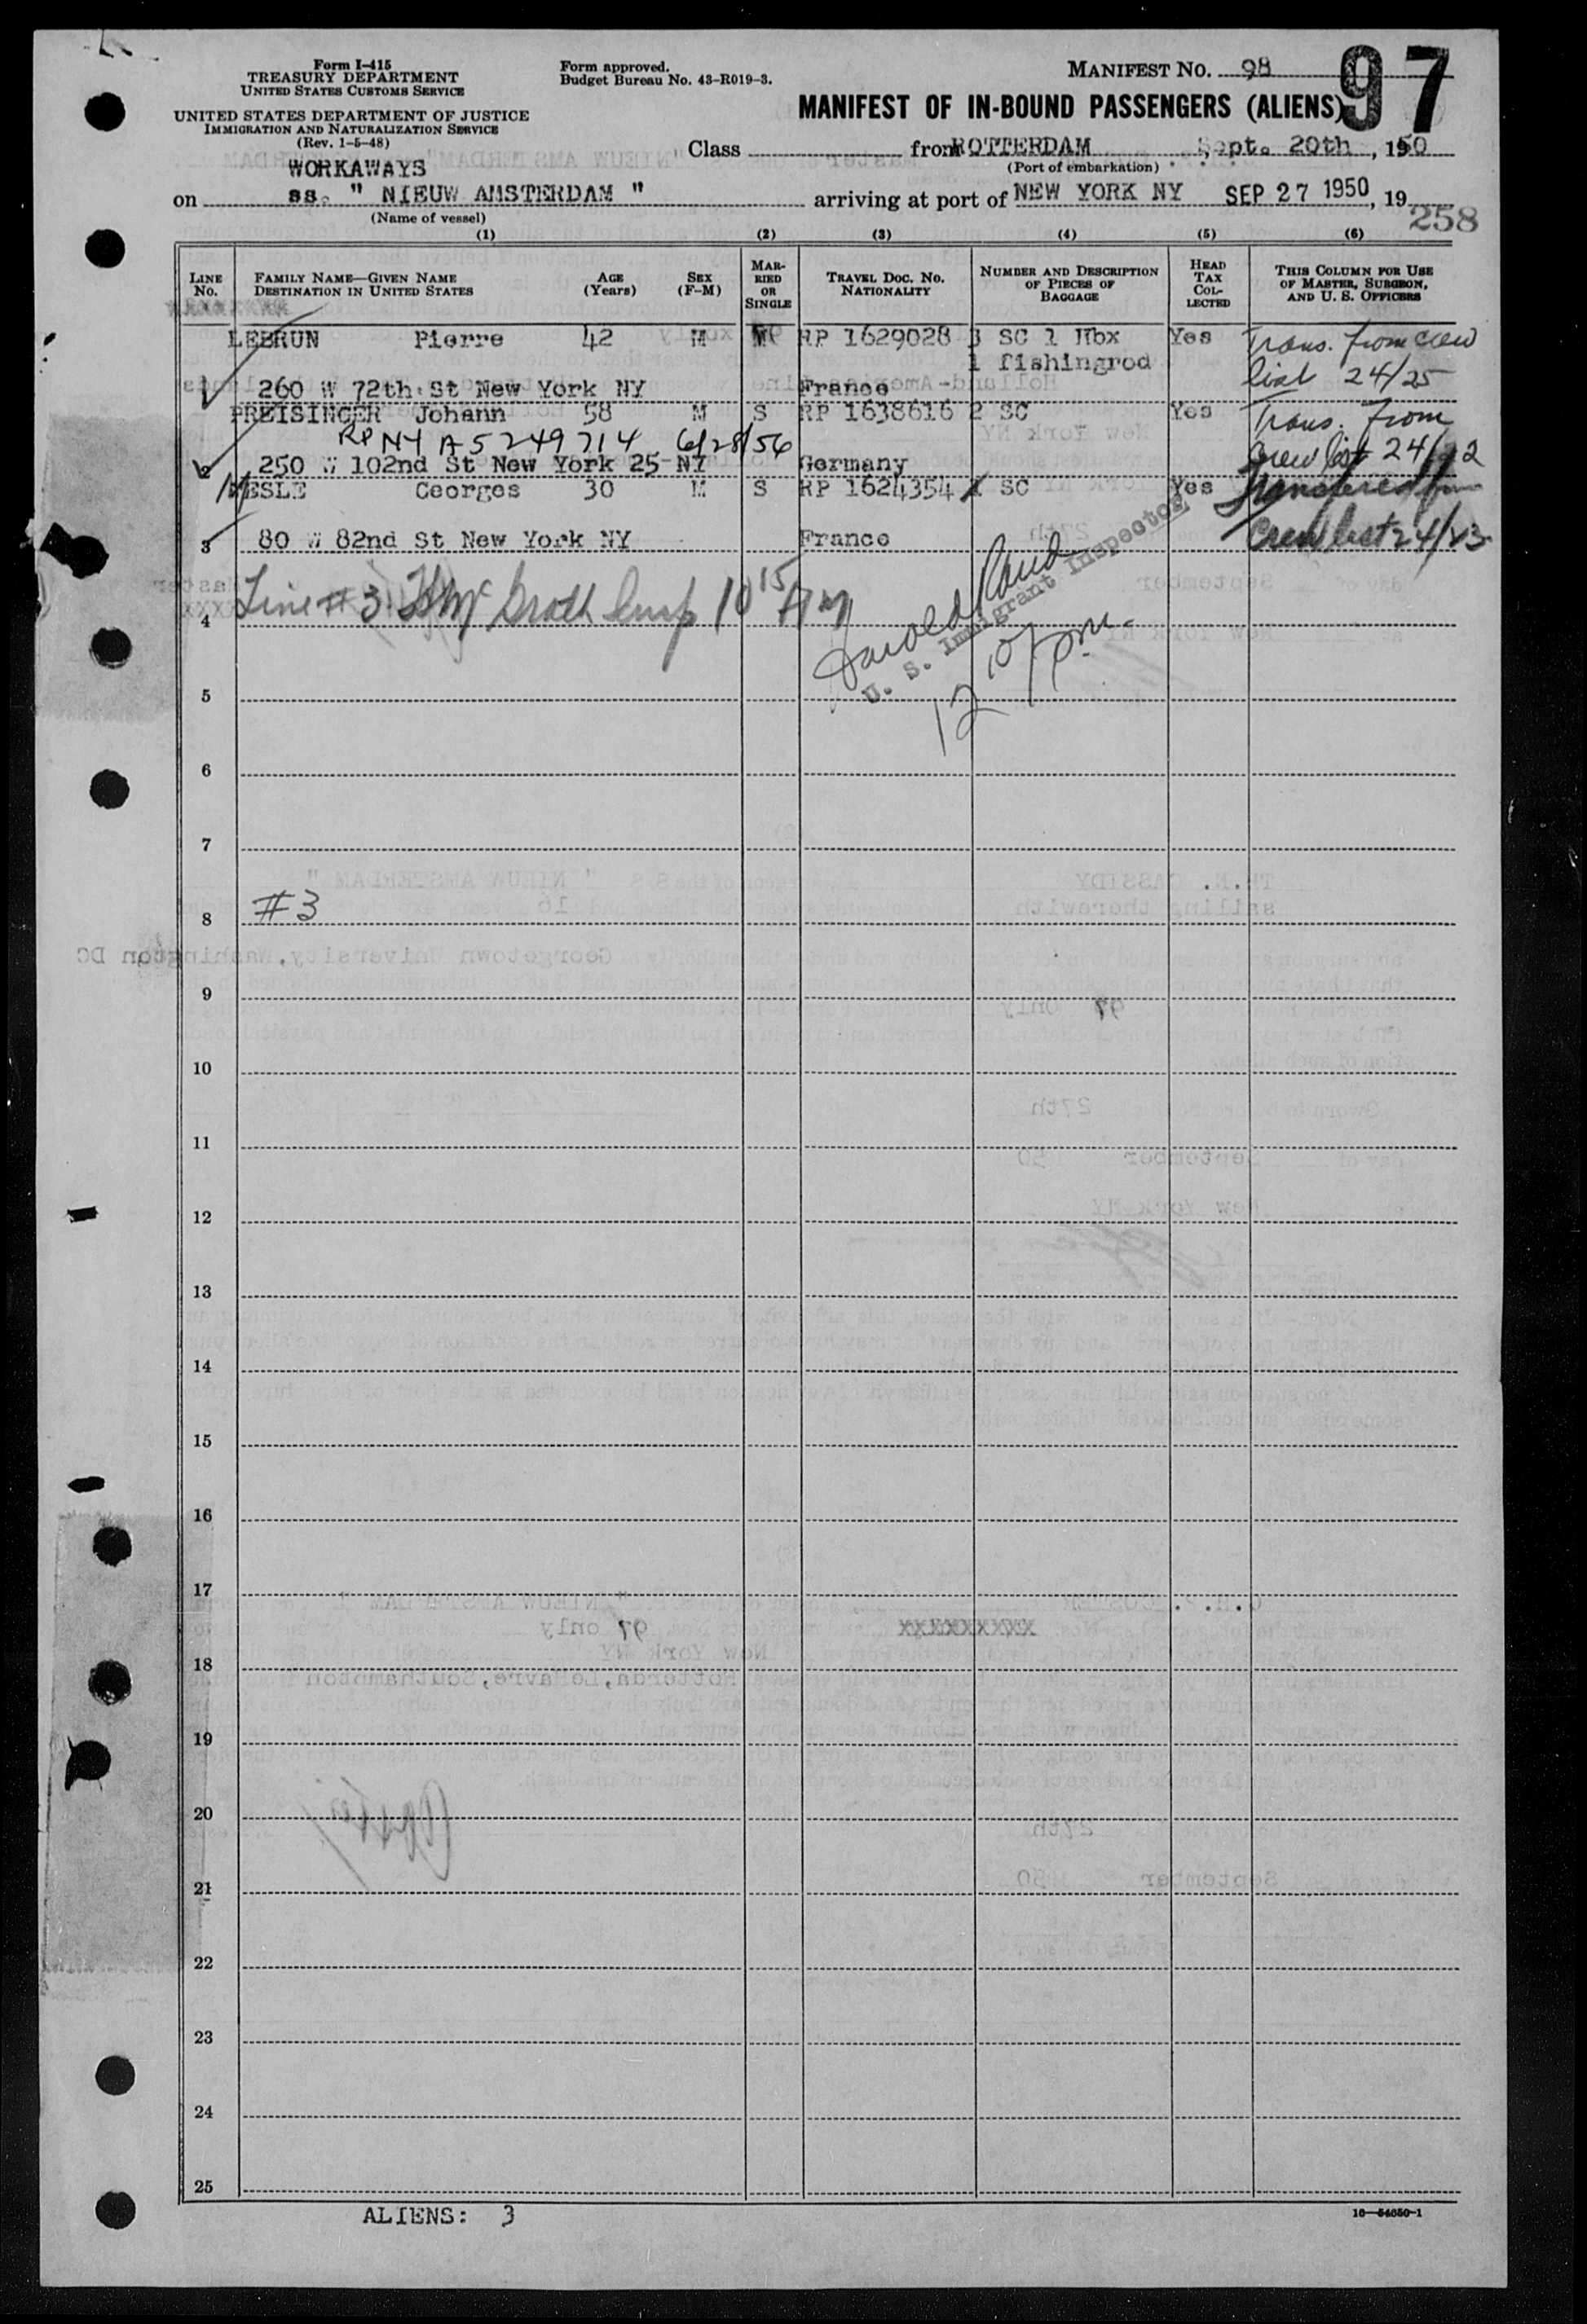 Form I-415
TREASURY DEPARTMENT
UNITED STATES CUSTOMS SERVICE
UNITED STATES DEPARTMENT OF JUSTICE
IMMIGRATION AND NATURALIZATION SERVICE
(Rev. 1-5-48)
Form approved.
Budget Bureau No. 43-R019-3.
MANIFEST NO. 98
97
MANIFEST OF IN-BOUND PASSENGERS (ALIENS)
Class from ROTTERDAM, Sept. 20th, 1950
(Port of embarkation)
WORKAWAYS
on ss. " NIEUW AMSTERDAM " arriving at port of NEW YORK NY SEP 27 1950, 19
(Name of vessel)
258
(1) (2) (3) (4) (5) (6)
LINE No.
FAMILY NAME—GIVEN NAME
DESTINATION IN UNITED STATES
AGE (Years)
SEX (F-M)
MARRIED OR SINGLE
TRAVEL DOC. NO.
NATIONALITY
NUMBER AND DESCRIPTION OF PIECES OF BAGGAGE
HEAD TAX COLLECTED
THIS COLUMN FOR USE OF MASTER, SURGEON, AND U. S. OFFICERS
LEBRUN Pierre 42 M M RP 1629028 3 SC 1 Hbx Yes Trans. from crew
1 fishingrod
1 260 W 72th St New York NY France list 24/25
PREISINGER Johann 58 M S RP 1638616 2 SC Yes Trans. from
RP NY A5249714 6/28/56
2 250 W 102nd St New York 25 NY Germany crew list 24/22
NESLE Georges 30 M S RP 1624354 1 SC Yes Transfered from
3 80 W 82nd St New York NY France Crew list 24/23
4 Line #3 Insp 10 15 Am
Harold Rand
U. S. Immigrant Inspector
12 10 pm.
5
6
7
8 #3
9
10
11
12
13
14
15
16
17
18
19
20
21
22
23
24
25
ALIENS: 3
16—54650-1